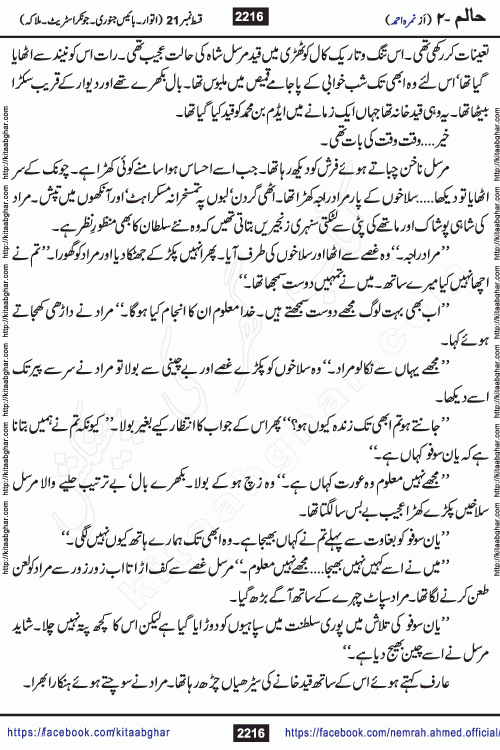 حالم -۲ (از نمرہ احمد) 2216 قسط نمبر 21 (اتوار۔ بائیس جنوری۔ جونکر اسٹریٹ۔ ملاکہ)
تعینات کر رکھی تھی۔ اس تنگ و تاریک کال کوٹھڑی میں قید مرسل شاہ کی حالت عجیب تھی۔ رات اس کو نیند سے اٹھایا
گیا تھا‘ اس لئے وہ ابھی تک شب خوابی کے پاجامے قمیص میں ملبوس تھا۔ بال بکھرے تھے اور دیوار کے قریب سکڑا
بیٹھا تھا۔ یہ وہی قید خانہ تھا جہاں ایک زمانے میں ایڈم بن محمد کو قید کیا گیا تھا۔
خیر....وقت وقت کی بات تھی۔
مرسل ناخن چباتے ہوئے فرش کو دیکھ رہا تھا۔ جب اسے احساس ہوا سامنے کوئی کھڑا ہے۔ چونک کے سر
اٹھایا تو دیکھا.....سلاخوں کے پار مراد راجہ کھڑا تھا۔ اٹھی گردن‘ لبوں پہ تمسخرانہ مسکراہٹ‘ اور آنکھوں میں تپش۔ مراد
کی شاہی پوشاک اور ماتھے کی پٹی سے لٹکتی سنہری زنجیریں بتاتی تھیں کہ وہ نئے سلطان کا بھی منظورِ نظر ہے۔
’’مراد راجہ۔‘‘ وہ غصے سے اٹھا اور سلاخوں کی طرف آیا۔ پھر انہیں پکڑ کے جھٹکا دیا اور مراد کو گھورا۔ ’’تم نے
اچھا نہیں کیا میرے ساتھ۔ میں نے تمہیں دوست سمجھا تھا۔‘‘
’’اب بھی بہت لوگ مجھے دوست سمجھتے ہیں۔ خدا معلوم ان کا انجام کیا ہوگا۔‘‘ مراد نے داڑھی کھجاتے
ہوئے کہا۔
’’مجھے یہاں سے نکالو مراد۔‘‘ وہ سلاخوں کو پکڑے غصے اور بے چینی سے بولا تو مراد نے سر سے پیر تک
اسے دیکھا۔
’’جانتے ہو تم ابھی تک زندہ کیوں ہو؟‘‘ پھر اس کے جواب کا انتظار کیے بغیر بولا۔ ’’کیونکہ تم نے ہمیں بتانا
ہے کہ یان سوفو کہاں ہے۔‘‘
’’مجھے نہیں معلوم وہ عورت کہاں ہے۔‘‘ وہ زچ ہو کے بولا۔ بکھرے بال‘ بے ترتیب حلیے والا مرسل
سلاخیں پکڑے کھڑا عجیب بے بس سا لگتا تھا۔
’’یان سوفو کو بغاوت سے پہلے تم نے کہاں بھیجا ہے۔ وہ ابھی تک ہمارے ہاتھ کیوں نہیں لگی۔‘‘
’’میں نے اسے کہیں نہیں بھیجا....مجھے نہیں معلوم۔‘‘ مرسل غصے سے کف اڑاتا اب زور زور سے مراد کو لعن
طعن کرنے لگا تھا۔ مراد سپاٹ چہرے کے ساتھ آگے بڑھ گیا۔
’’یان سوفو کی تلاش میں پوری سلطنت میں سپاہیوں کو دوڑایا گیا ہے لیکن اس کا کچھ پتہ نہیں چلا۔ شاید
مرسل نے اسے چین بھیج دیا ہے۔‘‘
عارف کہتے ہوئے اس کے ساتھ قید خانے کی سیڑھیاں چڑھ رہا تھا۔ مراد نے سوچتے ہوئے ہنکارا بھرا۔
http://kitaabghar.com http://kitaabghar.com http://kitaabghar.com http://kitaabghar.com
https://facebook.com/kitaabghar 2216 https://facebook.com/nemrah.ahmed.official/